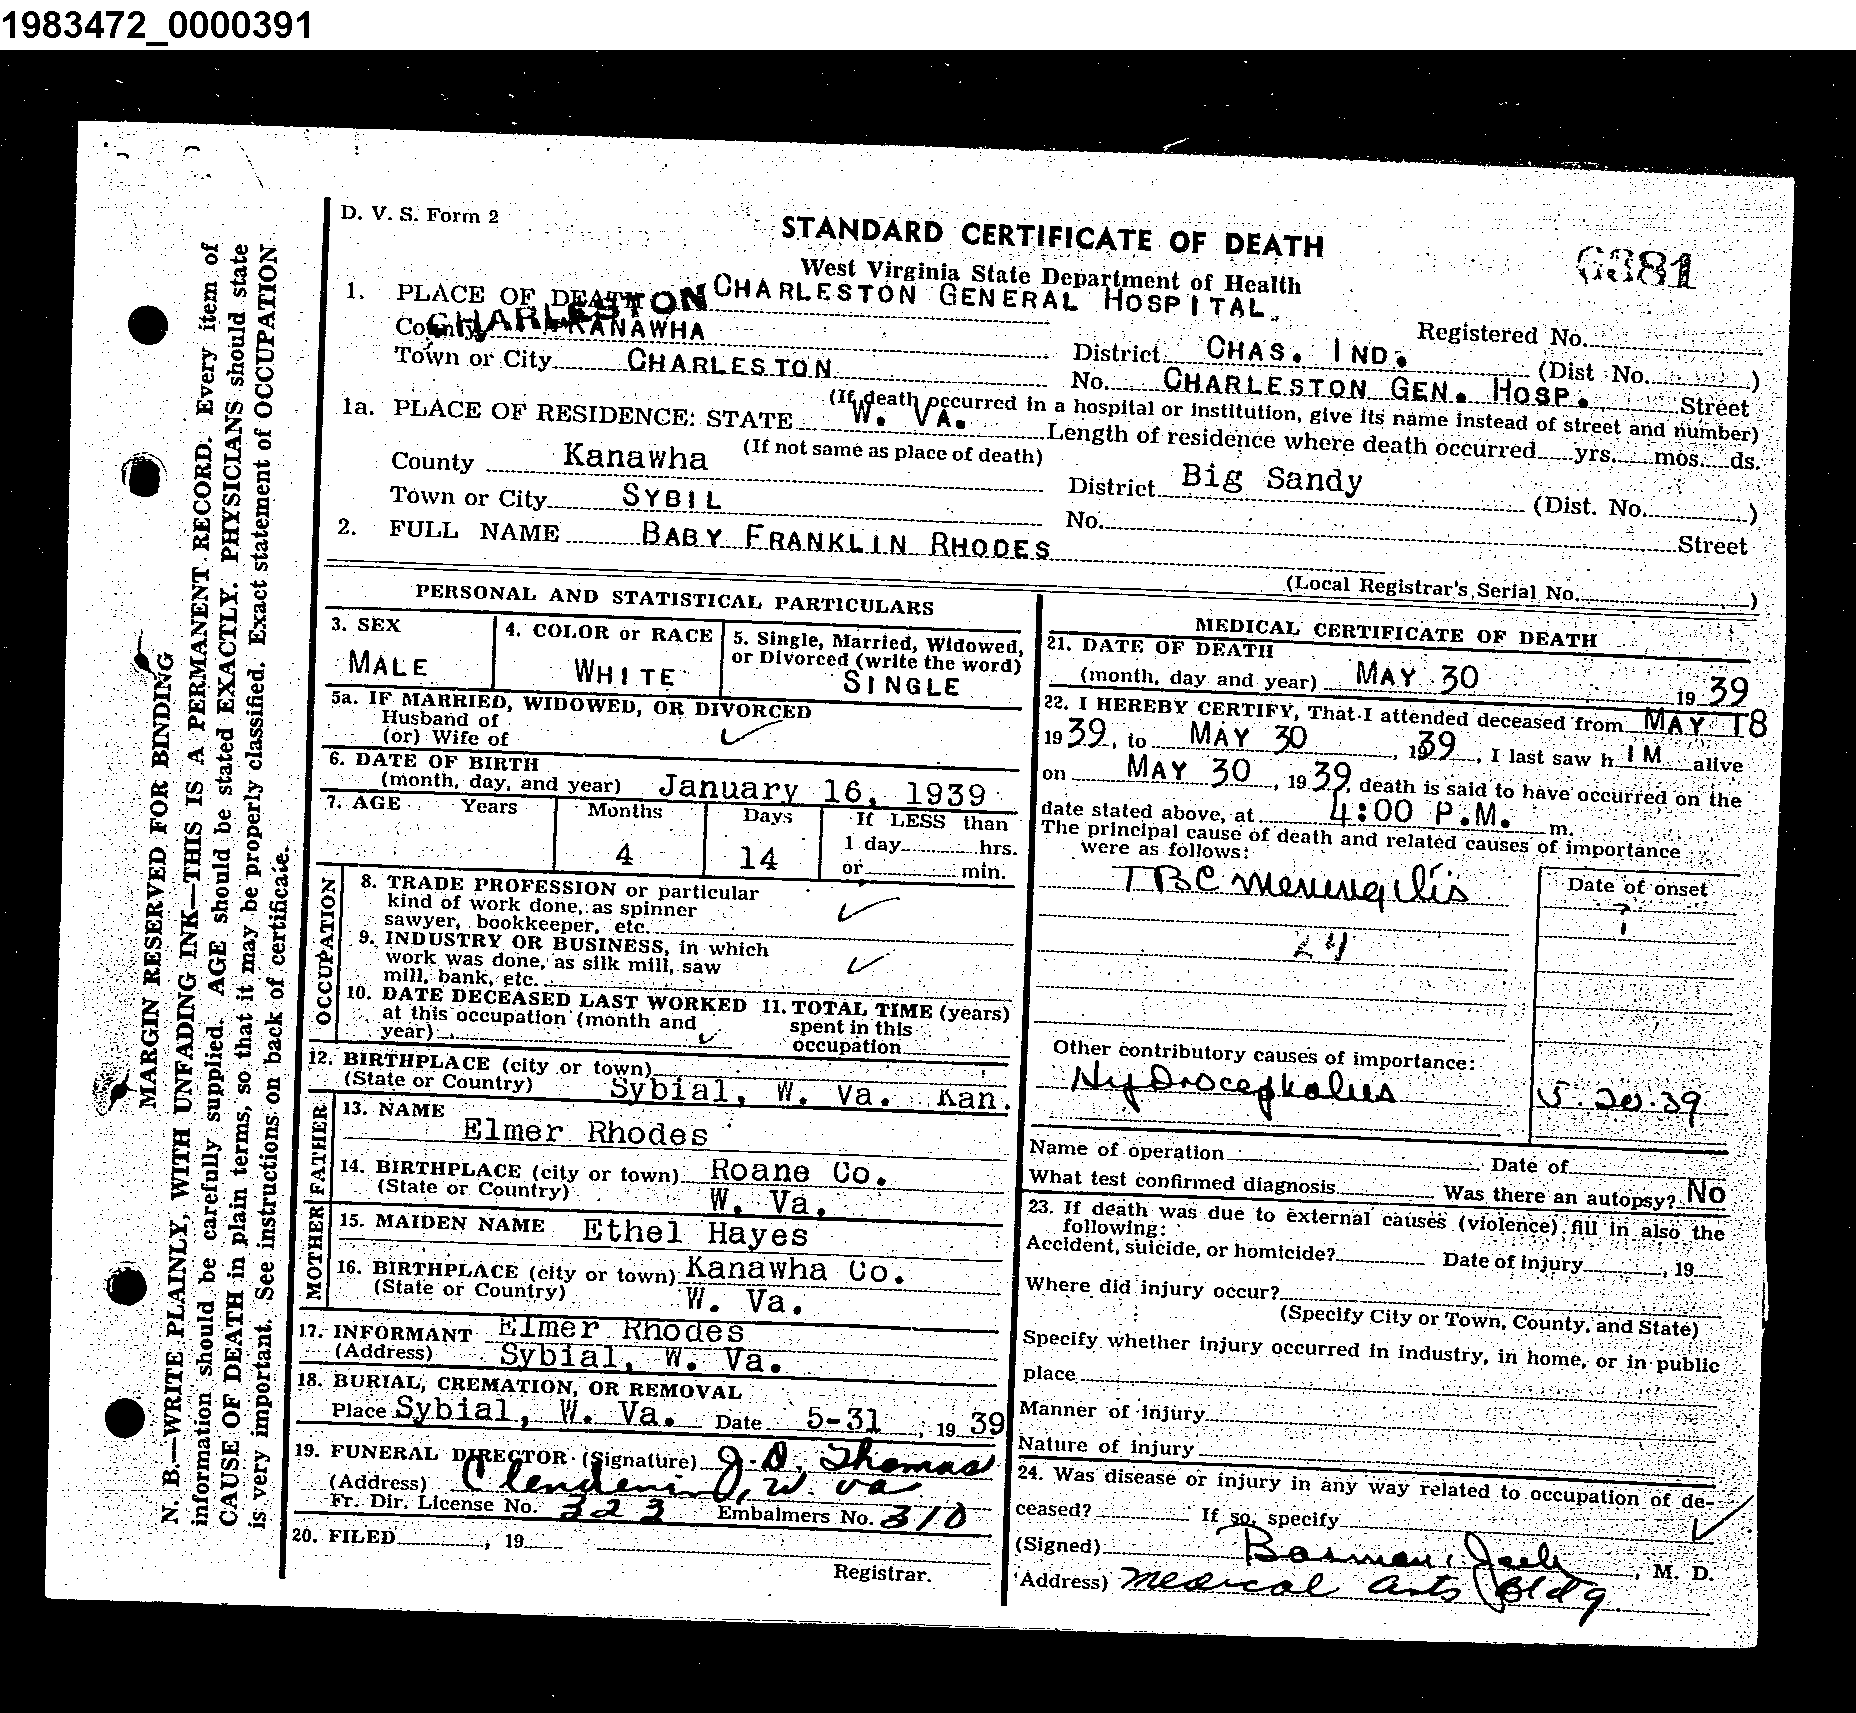 1983472_0000391
D. V. S. Form 2
STANDARD CERTIFICATE OF DEATH
6381
West Virginia State Department of Health
1. PLACE OF DEATH CHARLESTON CHARLESTON GENERAL HOSPITAL.
County KANAWHA
Registered No.
Town or City CHARLESTON
District CHAS. IND. (Dist No. )
No. CHARLESTON GEN. HOSP. Street
(If death occurred in a hospital or institution, give its name instead of street and number)
1a. PLACE OF RESIDENCE: STATE W. VA.
Length of residence where death occurred yrs. mos. ds.
(If not same as place of death)
County Kanawha
District Big Sandy (Dist. No. )
Town or City SYBIL
No. Street
2. FULL NAME BABY FRANKLIN RHODES
(Local Registrar's Serial No. )
PERSONAL AND STATISTICAL PARTICULARS
3. SEX
MALE
4. COLOR or RACE
WHITE
5. Single, Married, Widowed,
or Divorced (write the word)
SINGLE
5a. IF MARRIED, WIDOWED, OR DIVORCED
Husband of
(or) Wife of
6. DATE OF BIRTH
(month, day, and year) January 16, 1939
7. AGE Years Months Days If LESS than
1 day hrs.
4 14
or min.
OCCUPATION
8. TRADE PROFESSION or particular
kind of work done, as spinner
sawyer, bookkeeper, etc.
9. INDUSTRY OR BUSINESS, in which
work was done, as silk mill, saw
mill, bank, etc.
10. DATE DECEASED LAST WORKED
at this occupation (month and
year)
11. TOTAL TIME (years)
spent in this
occupation
12. BIRTHPLACE (city or town)
(State or Country) Sybial, W. Va. Kan.
FATHER
13. NAME
Elmer Rhodes
14. BIRTHPLACE (city or town) Roane Co.
(State or Country) W. Va.
MOTHER
15. MAIDEN NAME Ethel Hayes
16. BIRTHPLACE (city or town) Kanawha Co.
(State or Country) W. Va.
17. INFORMANT Elmer Rhodes
(Address) Sybial, W. Va.
18. BURIAL, CREMATION, OR REMOVAL
Place Sybial, W. Va. Date 5-31, 1939
19. FUNERAL DIRECTOR (Signature) J. D. Thomas
(Address) Clendenin, W. Va
Fr. Dir. License No. 323 Embalmers No. 310
20. FILED , 19
Registrar.
MEDICAL CERTIFICATE OF DEATH
21. DATE OF DEATH
(month, day and year) MAY 30 1939
22. I HEREBY CERTIFY, That I attended deceased from MAY 18
1939, to MAY 30, 1939, I last saw h IM alive
on MAY 30, 1939, death is said to have occurred on the
date stated above, at 4:00 P.M. m.
The principal cause of death and related causes of importance
were as follows:
Date of onset
TBC meningitis ?
24
Other contributory causes of importance:
Hydrocephalus 5.20.39
Name of operation Date of
What test confirmed diagnosis Was there an autopsy? No
23. If death was due to external causes (violence) fill in also the
following:
Accident, suicide, or homicide? Date of injury , 19
Where did injury occur?
(Specify City or Town, County, and State)
Specify whether injury occurred in industry, in home, or in public
place
Manner of injury
Nature of injury
24. Was disease or injury in any way related to occupation of de-
ceased? If so, specify
(Signed) M. D.
(Address) Medical Arts Bldg
MARGIN RESERVED FOR BINDING
N. B.—WRITE PLAINLY, WITH UNFADING INK—THIS IS A PERMANENT RECORD. Every item of
information should be carefully supplied. AGE should be stated EXACTLY. PHYSICIANS should state
CAUSE OF DEATH in plain terms, so that it may be properly classified. Exact statement of OCCUPATION
is very important. See instructions on back of certificate.